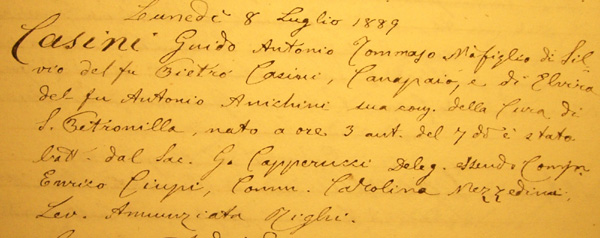 Lunedì 8 Luglio 1889
Casini Guido Antonio Tommaso Mo figlio di Sil
vio del fu Pietro Casini, Canapaio, e di Elvira
del fu Antonio Anichini sua con. della Cura di
S. Petronilla, nato a ore 3 ant. del 7 do è stato
batt. dal Sac. Go Capperucci Deleg. essendo Compr
Enrico Ciupi, Comm. Carolina Mezzedimi,
Lev. Annunziata Nighi.